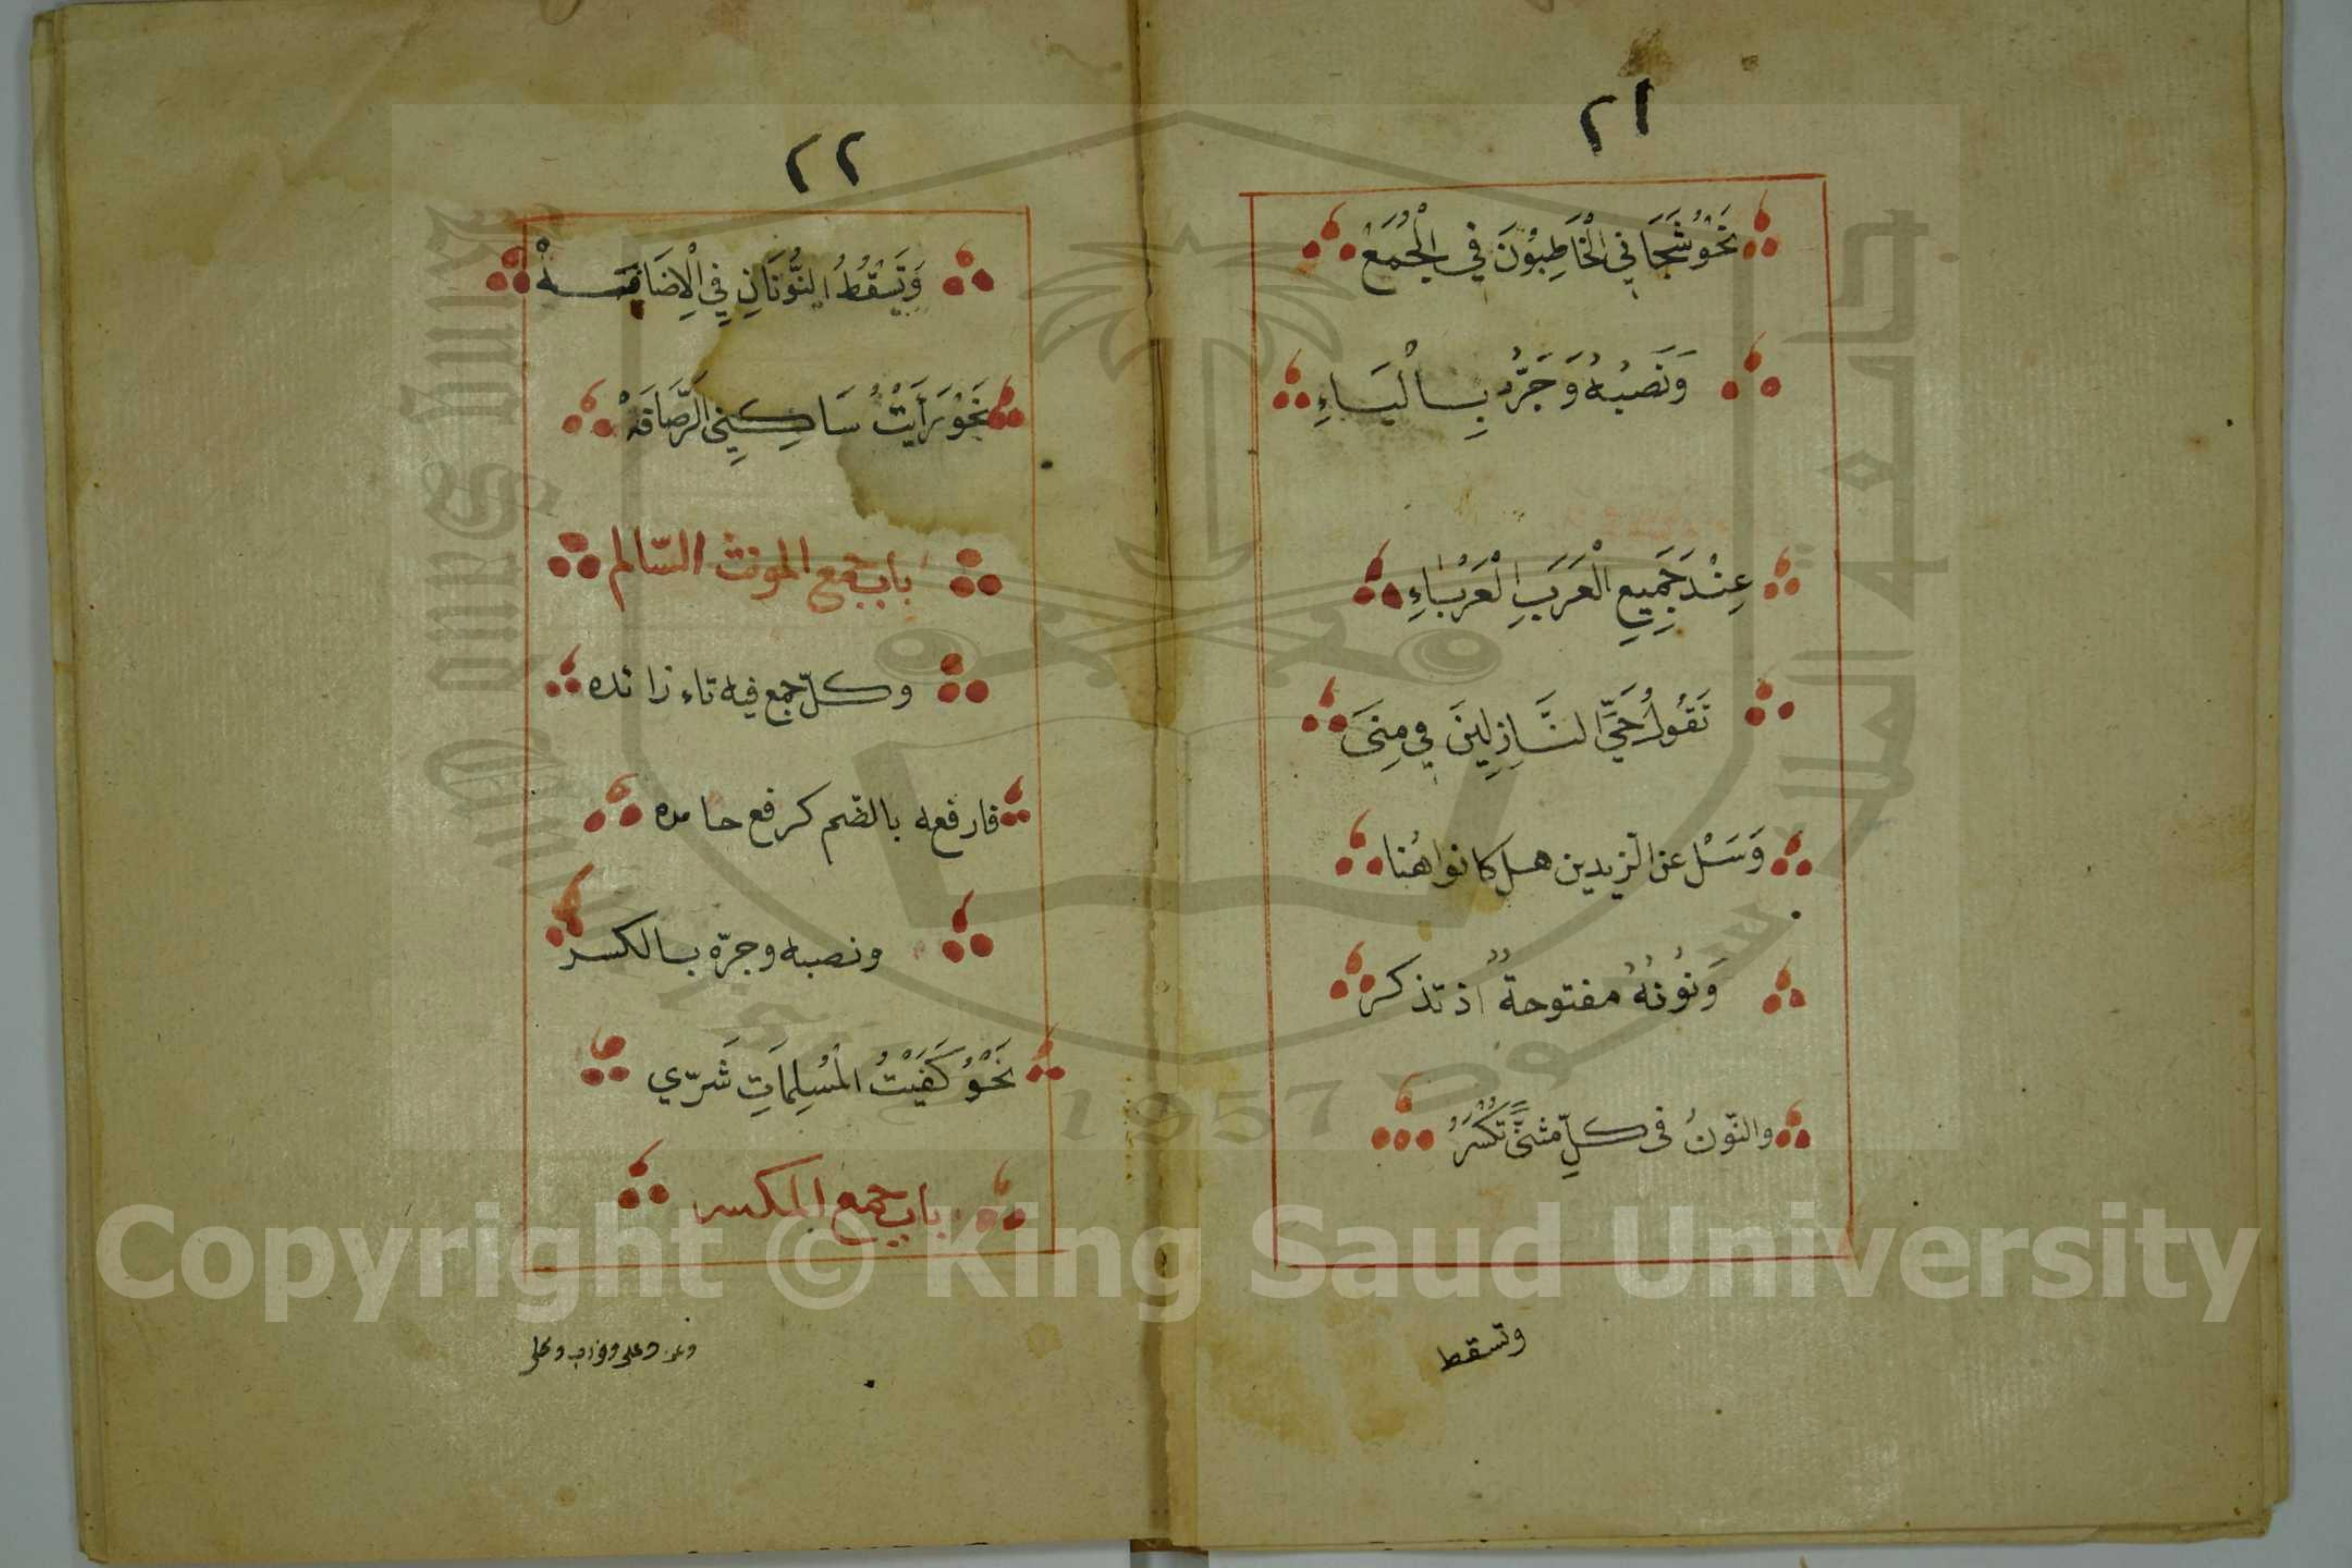 ٢١
نَحْوُ شَجَانِي الْخَاطِبُوْنَ فِي الْجُمَعْ
وَنَصْبُهُ وَجَرُّهُ بِالْيَاءِ
عِنْدَ جَمِيعِ الْعَرَبِ الْعَرْبَاءِ
تَقُولُ حَيِّ النَّازِلِينَ فِي مِنَى
وَسَلْ عن الزيدين هل كانوا هُنا
وَنُوْنُهُ مفتوحةٌ اذ تذكر
والنّونُ فى كلِّ مثنًّى تُكْسَرُ
وتسقط
٢٢
وَتَسْقُطُ النُّوْنَانِ فِي الْاِضَافَهْ
نَحْوُ رَأَيْتُ سَاكِنِي الرَّصَافَهْ
باب جمع المونث السّالم
وكلّ جمع فيه تاء زائده
فارفعه بالضّم كرفع حامده
ونصبه وجرّه بالكسر
نَحْوُ كَفَيْتُ الْمُسْلِمَاتِ شَرّي
باب جمع المكسر
جامعة الملك سعود
King Saud University
1957
Copyright © King Saud University